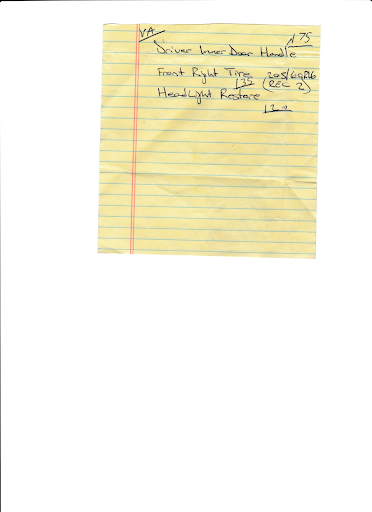 VA
175
Driver Inner Door Handle
Front Right Tire 205/60R16
135 (REC 2)
HeadLight Restore
120